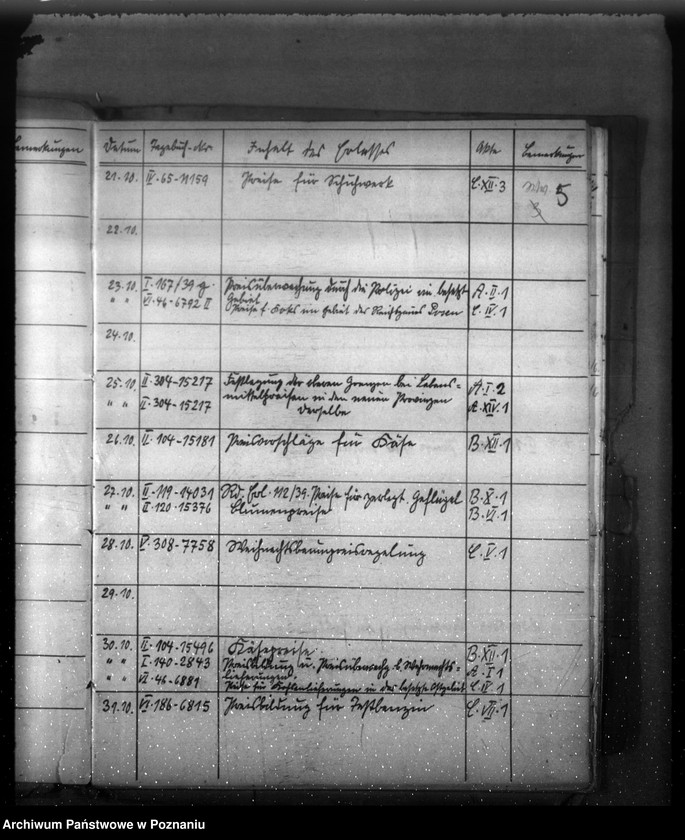 Bemerkungen
Datum Tagebuch-Nr Inhalt des Erlasses Akte Bemerkungen
21.10. IV-65-11159 Preise für Schuhwerk C.XII.3 5
3
22.10.
23.10. I-167/39 g. Preisüberwachung durch die Polizei im besetzt. A.II.1
Gebiet
" " VI-46-6792 II Preise f. Koks im Gebiet des Reichsgaues Posen C.IV.1
24.10.
25.10. II-304-15217 Festlegung der oberen Grenzen bei Lebens= A.I.2
mittelpreisen in den neuen Provinzen
" " II-304-15217 derselbe A.XIV.1
26.10. II-104-15181 Preisvorschläge für Käse B.XII.1
27.10. II-119-14031 Rd. Erl. 112/39. Preise für zerlegt. Geflügel B.X.1
" " II-120-15376 Blumenpreise B.VI.1
28.10. V-308-7758 Weihnachtsbaumpreisregelung C.V.1
29.10.
30.10. II-104-15496 Käsepreise. B.XII.1
" " I-140-2843 Preisbildung u. Preisüberwachg b. Wehrmachts= A.I.1
lieferungen.
" " VI-46-6881 Preise für Kohlenlieferungen in das besetzte Ostgebiet C.IV.1
31.10. VI-186-6815 Preisbildung für Testbenzin C.VII.1
Archiwum Państwowe w Poznaniu